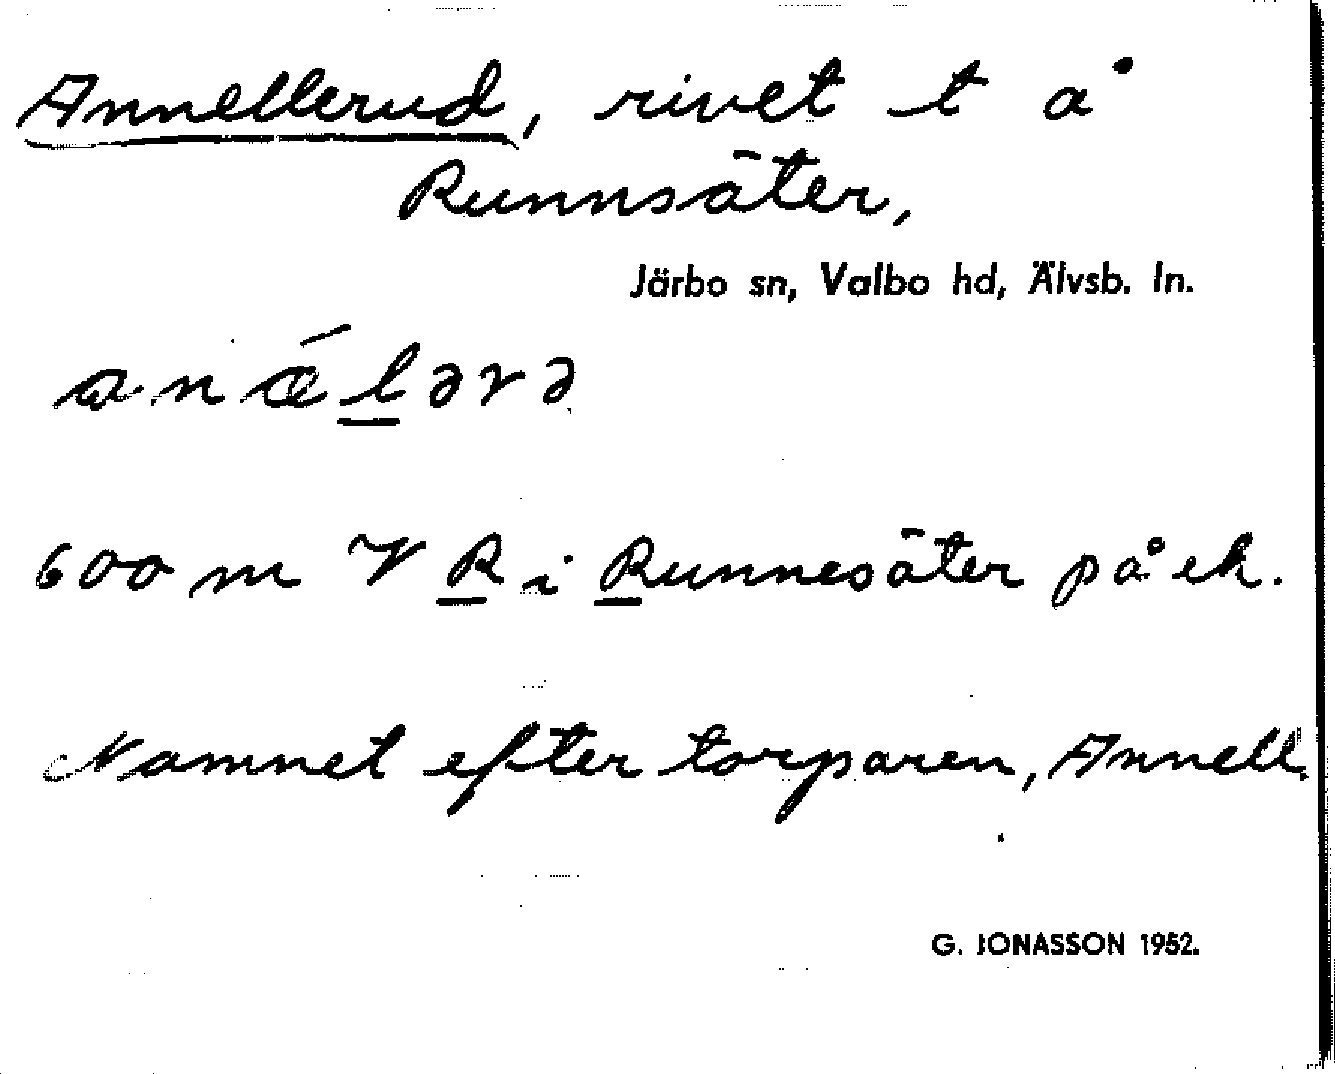 Annellerud, rivet t å
Runnsäter,
Järbo sn, Valbo hd, Älvsb. ln.
anǽlərə
600 m V R i Runnesäter på ek.
Namnet efter torparen, Annell.
G. JONASSON 1952.